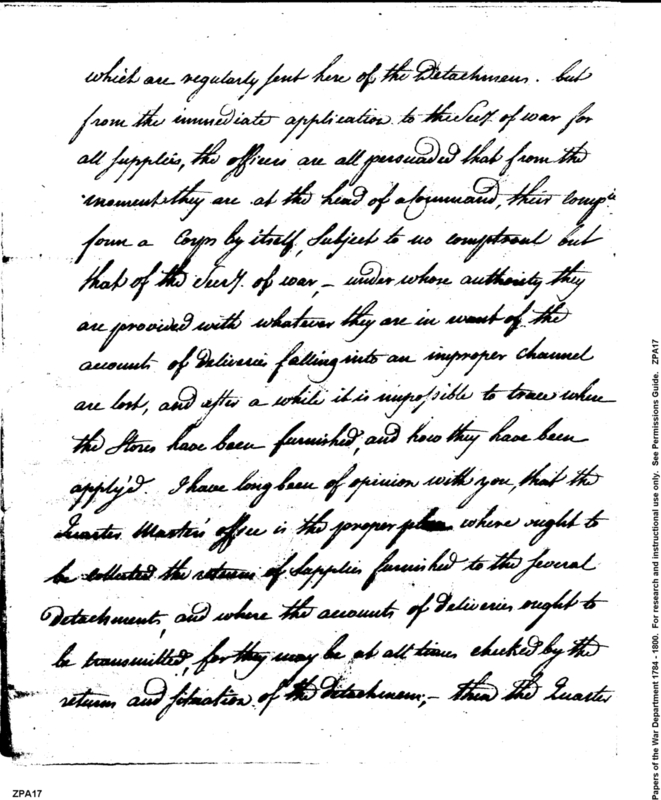 which are regularly sent here of the Detachmens. but
from the immediate application to the Secy. of war for
all supplies, the officers are all persuaded that from the
moment they are at the head of a Command, their comp.ie
form a Corps by itself, subject to no comptroul but
that of the Secry. of war, – under whose authority they
are provided with whatever they are in want of. the
accounts of deliveries falling into an improper channel
are lost, and after a while it is impossible to trace where
the Stores have been furnished, and how they have been
apply'd. I have long been of opinion with you, that the
Quarter Master's office is the proper place where ought to
be collected the returns of Supplies furnished to the several
Detachments, and where the accounts of deliveries ought to
be transmitted, for they may be at all times checked by the
returns and situation of the Detachmens; – then the Quarter
ZPA17
Papers of the War Department 1784 - 1800. For research and instructional use only. See Permissions Guide. ZPA17